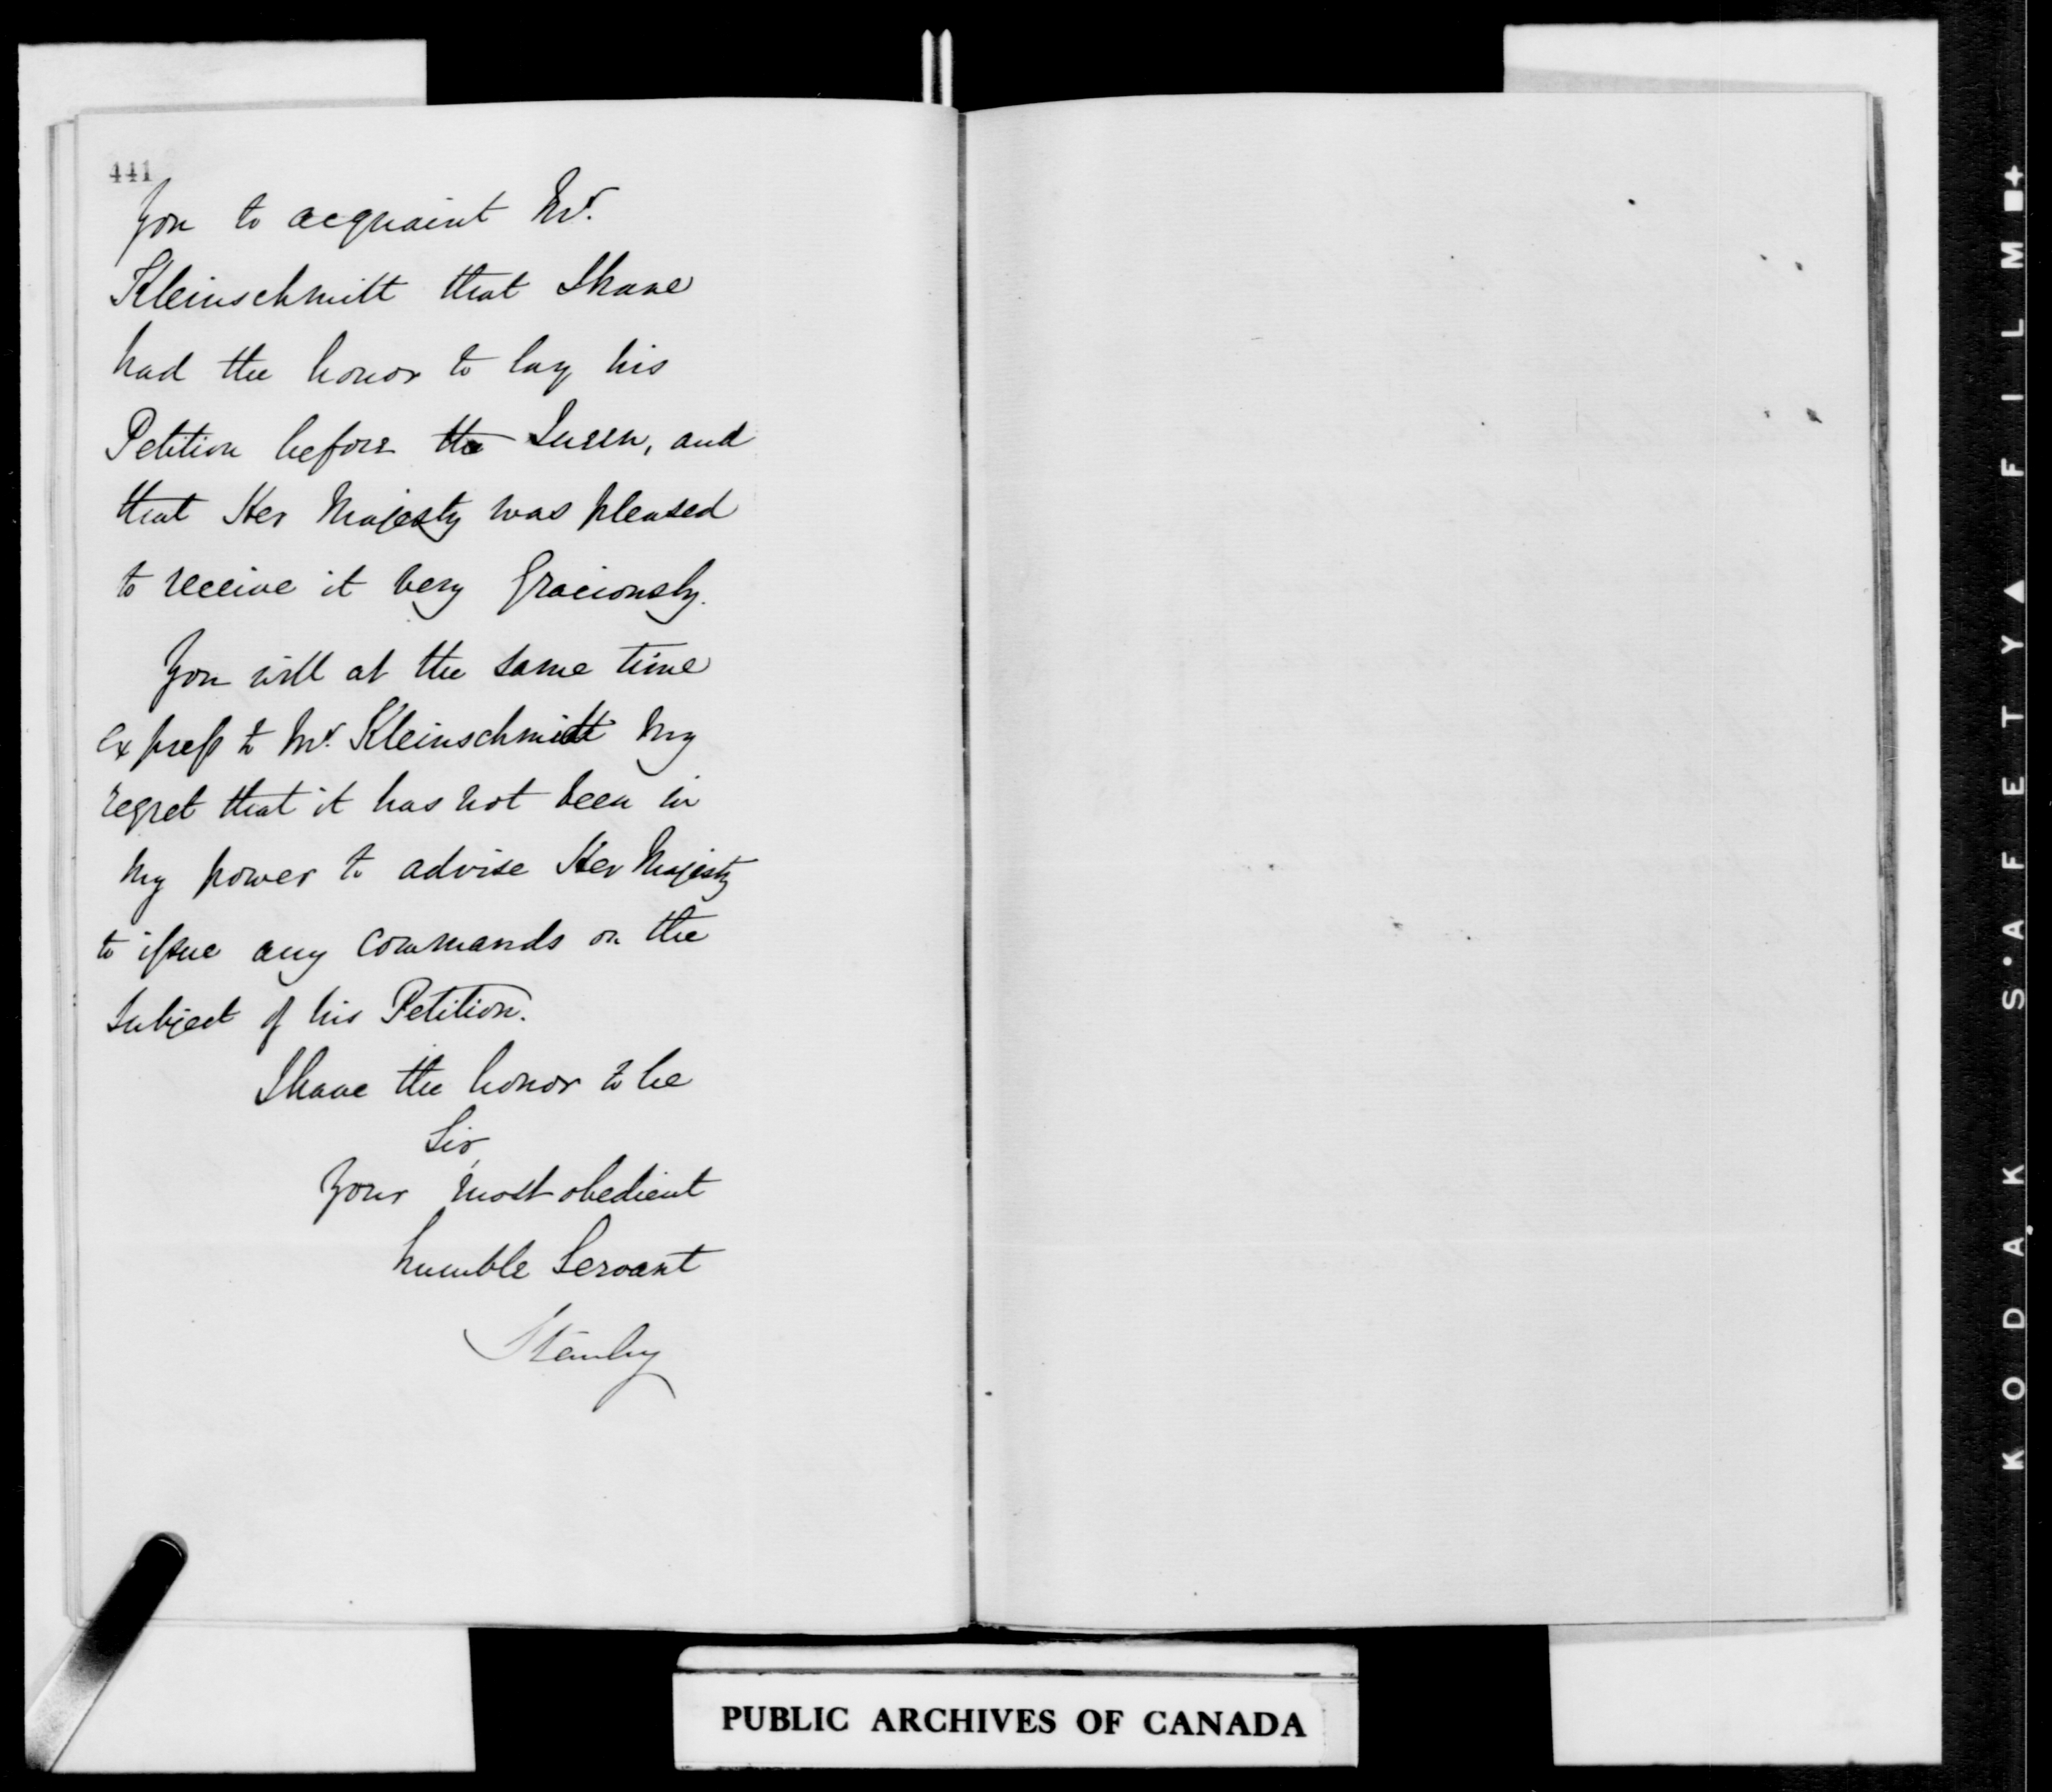 441
You to acquaint Mr.
Kleinschmitt that I have
had the honor to lay his
Petition before the Queen, and
that Her Majesty was pleased
to receive it very graciously.
You will at the same time
express to Mr. Kleinschmidt my
regret that it has not been in
my power to advise Her Majesty
to issue any commands on the
subject of his Petition.
I have the honor to be
Sir,
Your most obedient
humble Servant
Stanley
PUBLIC ARCHIVES OF CANADA
KODAK S·AFETY▲FILM■+